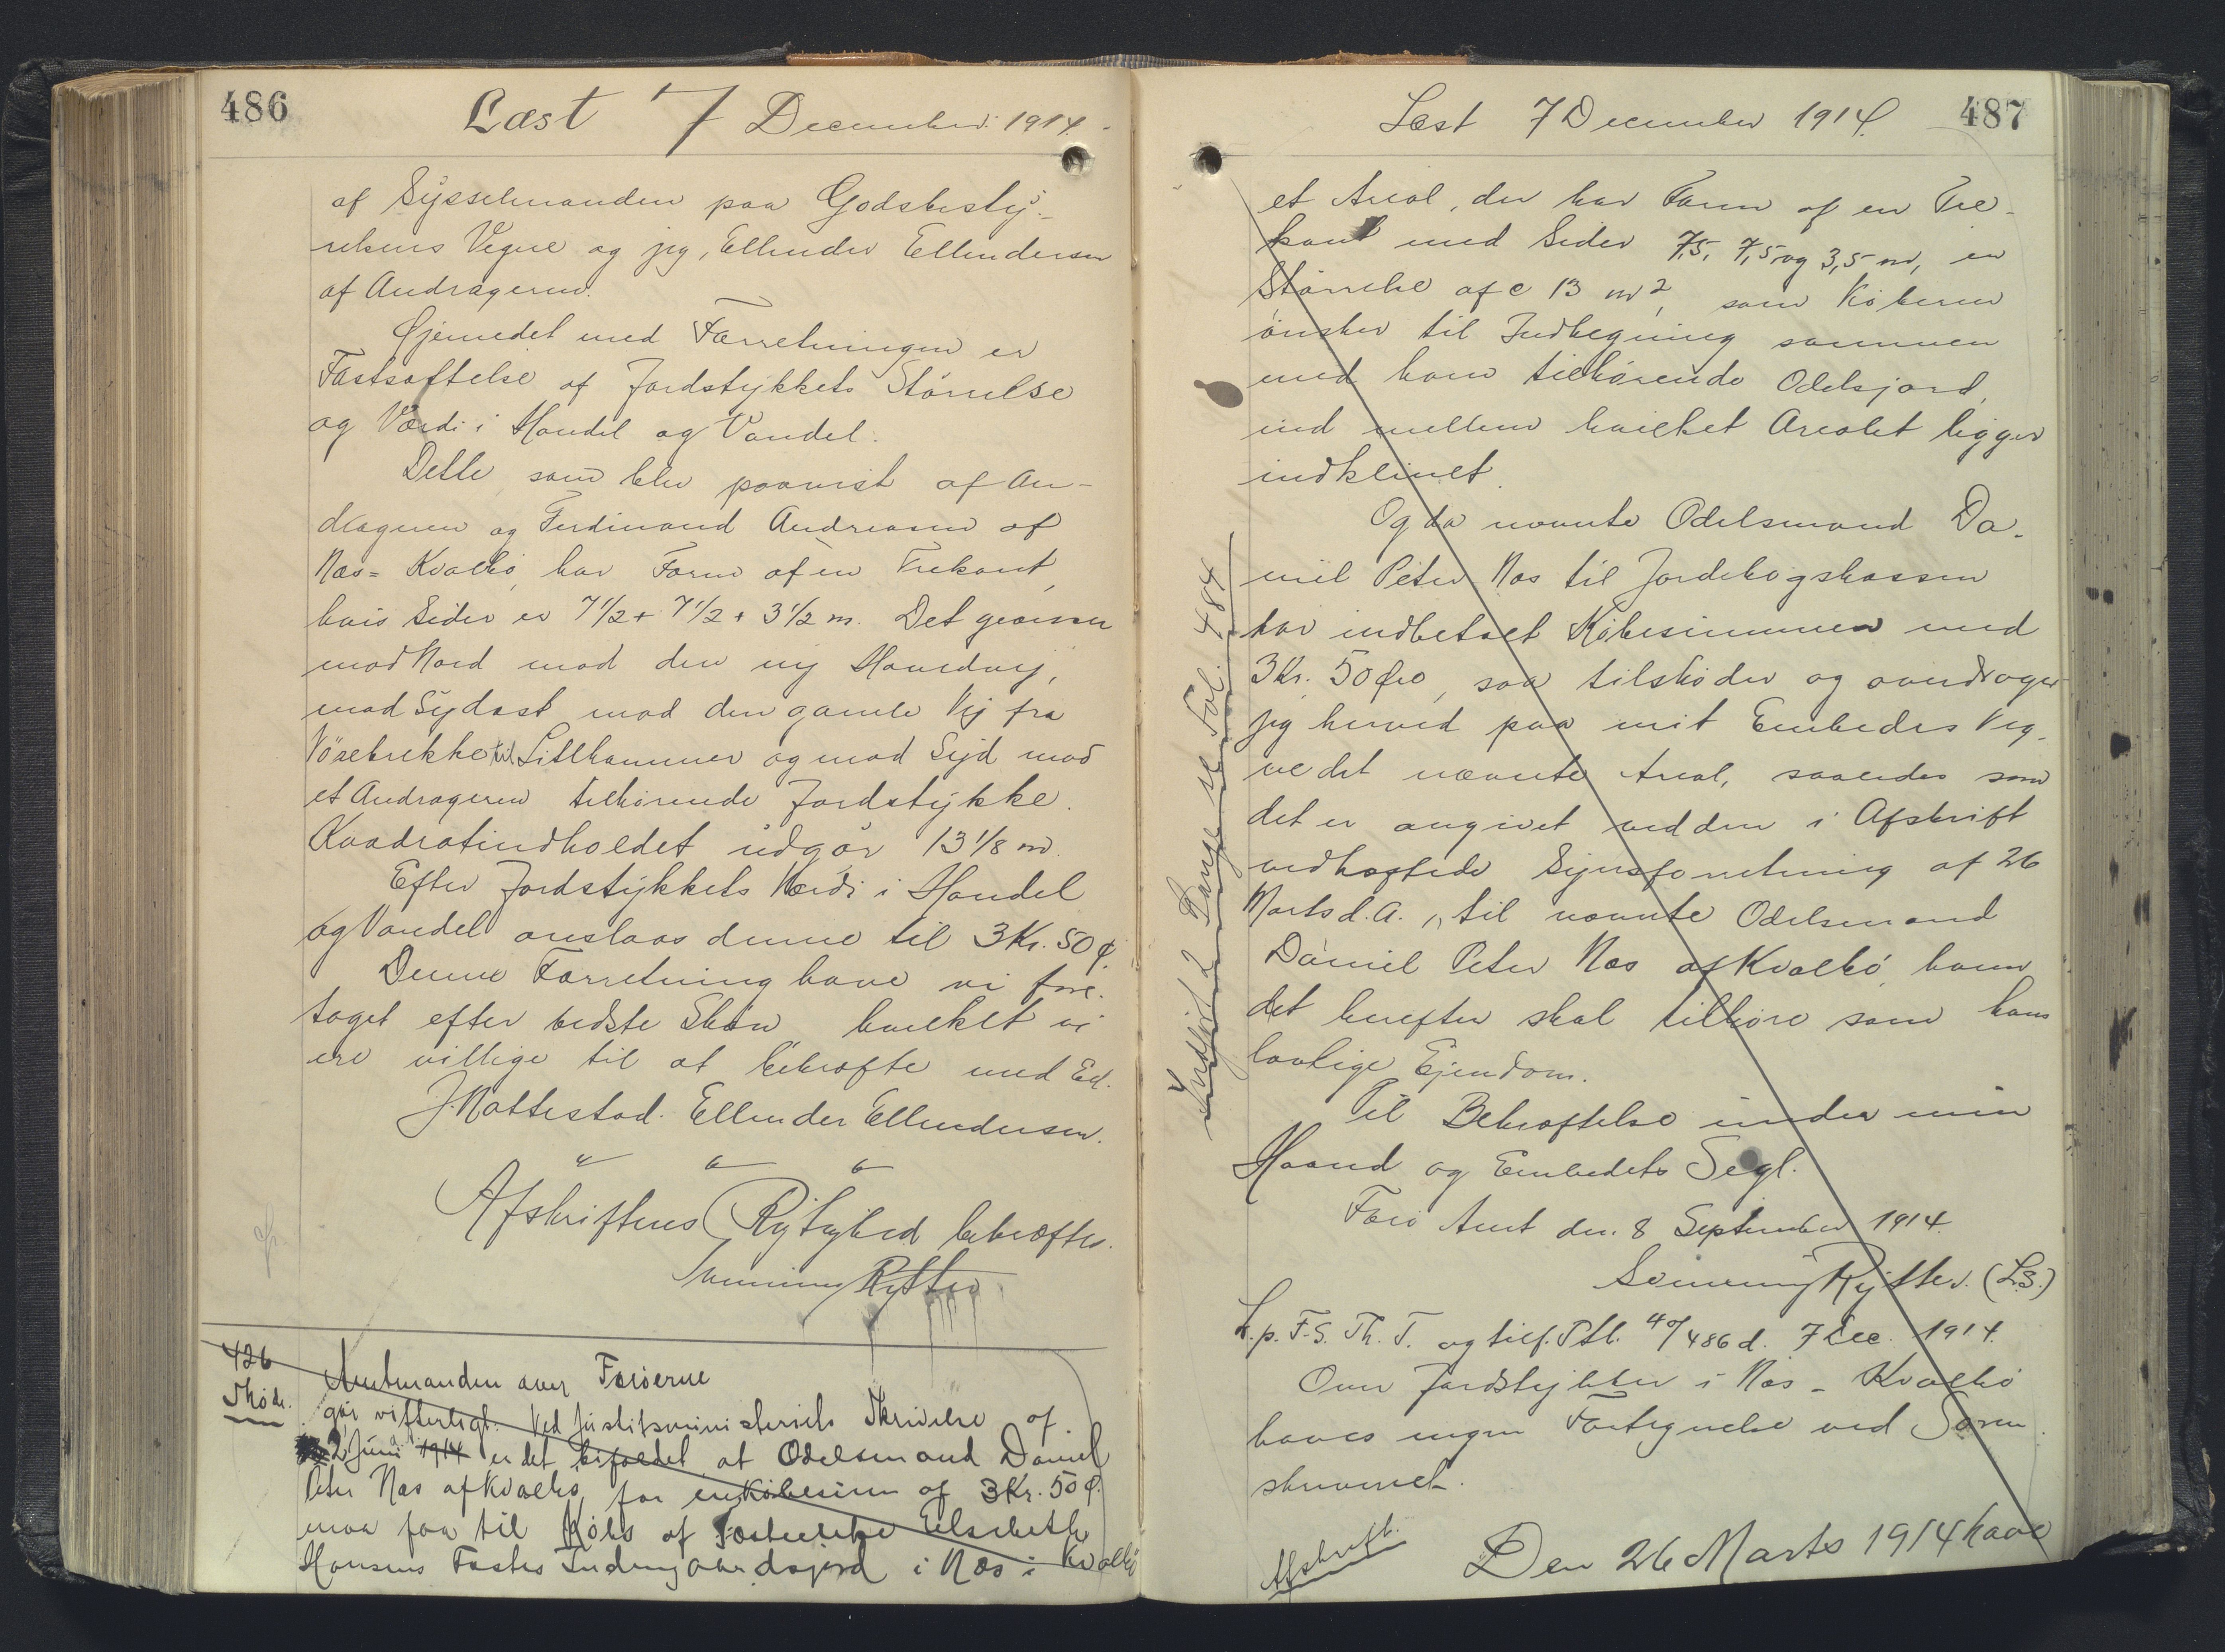 486
Læst 7 December 1914.
af Sysselmanden paa Godsbesty-
relsens Vegne og jeg, Ellender Ellendersen
af Andrageren.
Øjemedet med Forretningen er
Fastsættelse af Jordstykkets Størrelse
og Værdi i Handel og Vandel.
Dette som blev paavist af An-
drageren og Ferdinand Andreasen af
Næs=Kvalbø, har Form af en Trekant,
hvis Sider er 7 1/2 + 7 1/2 + 3 1/2 m. Det grænser
mod Nord mod den ny Hovedvej,
mod Sydøst mod den gamle Vej fra
til Litlhammer og mod Syd mod
et Andrageren tilhørende Jordstykke.
Kvadratindholdet udgør 13 1/8 m.
Efter Jordstykkets Værdi i Handel
og Vandel anslaas denne til 3 Kr. 50 Ø.
Denne Forretning have vi fore-
taget efter bedste Skøn hvilket vi
ere villige til at bekræfte med Ed.
J. Nattestad. Ellender Ellendersen.
Afskriftens Rigtighed bekræftes.
Svenning Rytter
426
Skøde.
Amtmanden over Færøerne
gør vitterligt: Ved Justitsministeriets Skrivelse af
2 Juni 1914 er det bifaldet at Odelsmand Daniel
Peter Næs af Kvalbø, for en Købesum af 3 Kr. 50 Ø.
maa faa til Købs af Fæsteenke Elsebeth
Hansens Fæstes Indmarksjord i Næs i Kvalbø
Læst 7 December 1914.
487
et Areal, der har Form af en Tre-
kant med Sider 7,5, 7,5 og 3,5 m, en
Størrelse af c 13 m2, som Køberen
ønsker til Indhegning sammen
med ham tilhørende Odelsjord,
ind mellem hvilket Arealet ligger
indklemt.
Og da nævnte Odelsmand Da-
niel Peter Næs til Jordebogskassen
har indbetalt Købesummen med
3 Kr. 50 Øre, saa tilskøder og overdrager
jeg herved paa mit Embedes Veg-
ne det nævnte Areal, saaledes som
det er angivet ved den i Afskrift
vedhæftede Synsforretning af 26
Marts d.A., til nævnte Odelsmand
Daniel Peter Næs af Kvalbø, hvem
det herefter skal tilhøre som hans
lovlige Ejendom.
Til Bekræftelse under min
Haand og Embedets Segl.
Færø Amt den 8 September 1914.
Svenning Rytter. (L.S.)
L. p. F. S. Th. T. og tilf. Ptl. 40/486 d. 7 Dec. 1914.
Over Jordstykker i Næs - Kvalbø
haves ingen Fortegnelse ved Soren-
skriveriet.
Afskrift.
Den 26 Marts 1914 have
Indført 2 Gange se Fol. 484